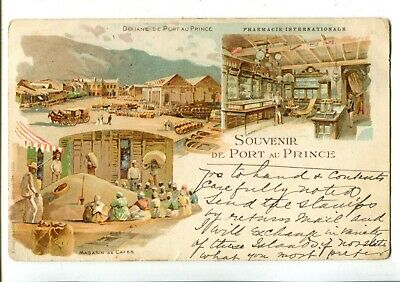 DOUANE DE PORT AU PRINCE
PHARMACIE INTERNATIONALE
SOUVENIR
DE PORT AU PRINCE
MAGASIN DE CAFÉS
yrs to hand & contents
carefully noted
Send the stamps
by return mail and
will exchange in variety
of these Islands, if
what you most prefer